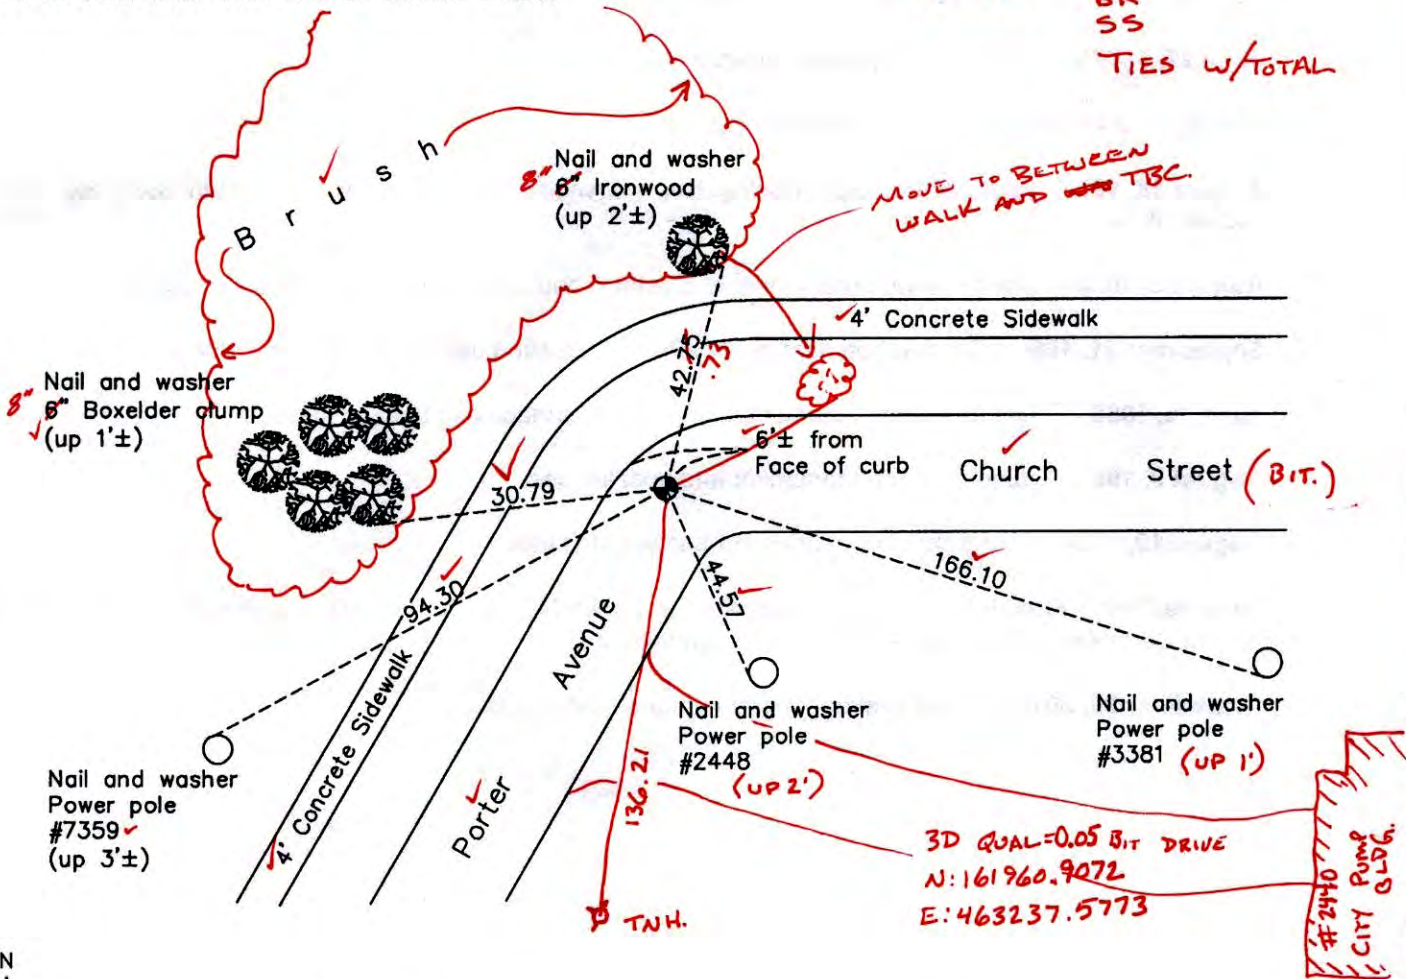 SS
TIES W/TOTAL
Brush
Nail and washer
8" 6" Ironwood
(up 2'±)
MOVE TO BETWEEN
WALK AND TBC.
4' Concrete Sidewalk
42.75
.73
Nail and washer
8" 6" Boxelder clump
(up 1'±)
6'± from
Face of curb
Church Street (BIT.)
30.79
94.30
44.57
166.10
4' Concrete Sidewalk
Porter Avenue
Nail and washer
Power pole
#7359
(up 3'±)
Nail and washer
Power pole
#2448
(UP 2')
Nail and washer
Power pole
#3381 (UP 1')
136.21
TNH.
3D QUAL=0.05 BIT DRIVE
N:161960.9072
E:463237.5773
#2440
CITY PUMP
BLDG.
N